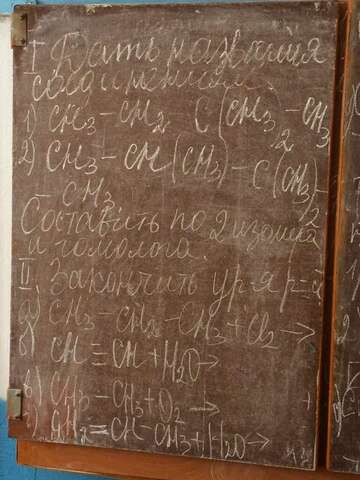 I Дать названия
соединениям:
1) CH₃ – CH₂ C(CH₃)₂ – CH₃
2) CH₃ – CH(CH₃) – C(CH₃)₂ –
– CH₃
Составить по 2 изомера
и гомолога.
II. Закончить ур-я р-ций
а) CH₃ – CH₂ – CH₃ + Cl₂ →
б) CH ≡ CH + H₂O →
в) CH₃ – CH₃ + O₂ →
г) CH₂ = CH – CH₃ + H₂O →